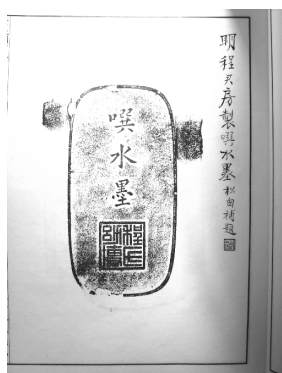 明程君房製噀水墨松甫補題
噀水墨
程氏